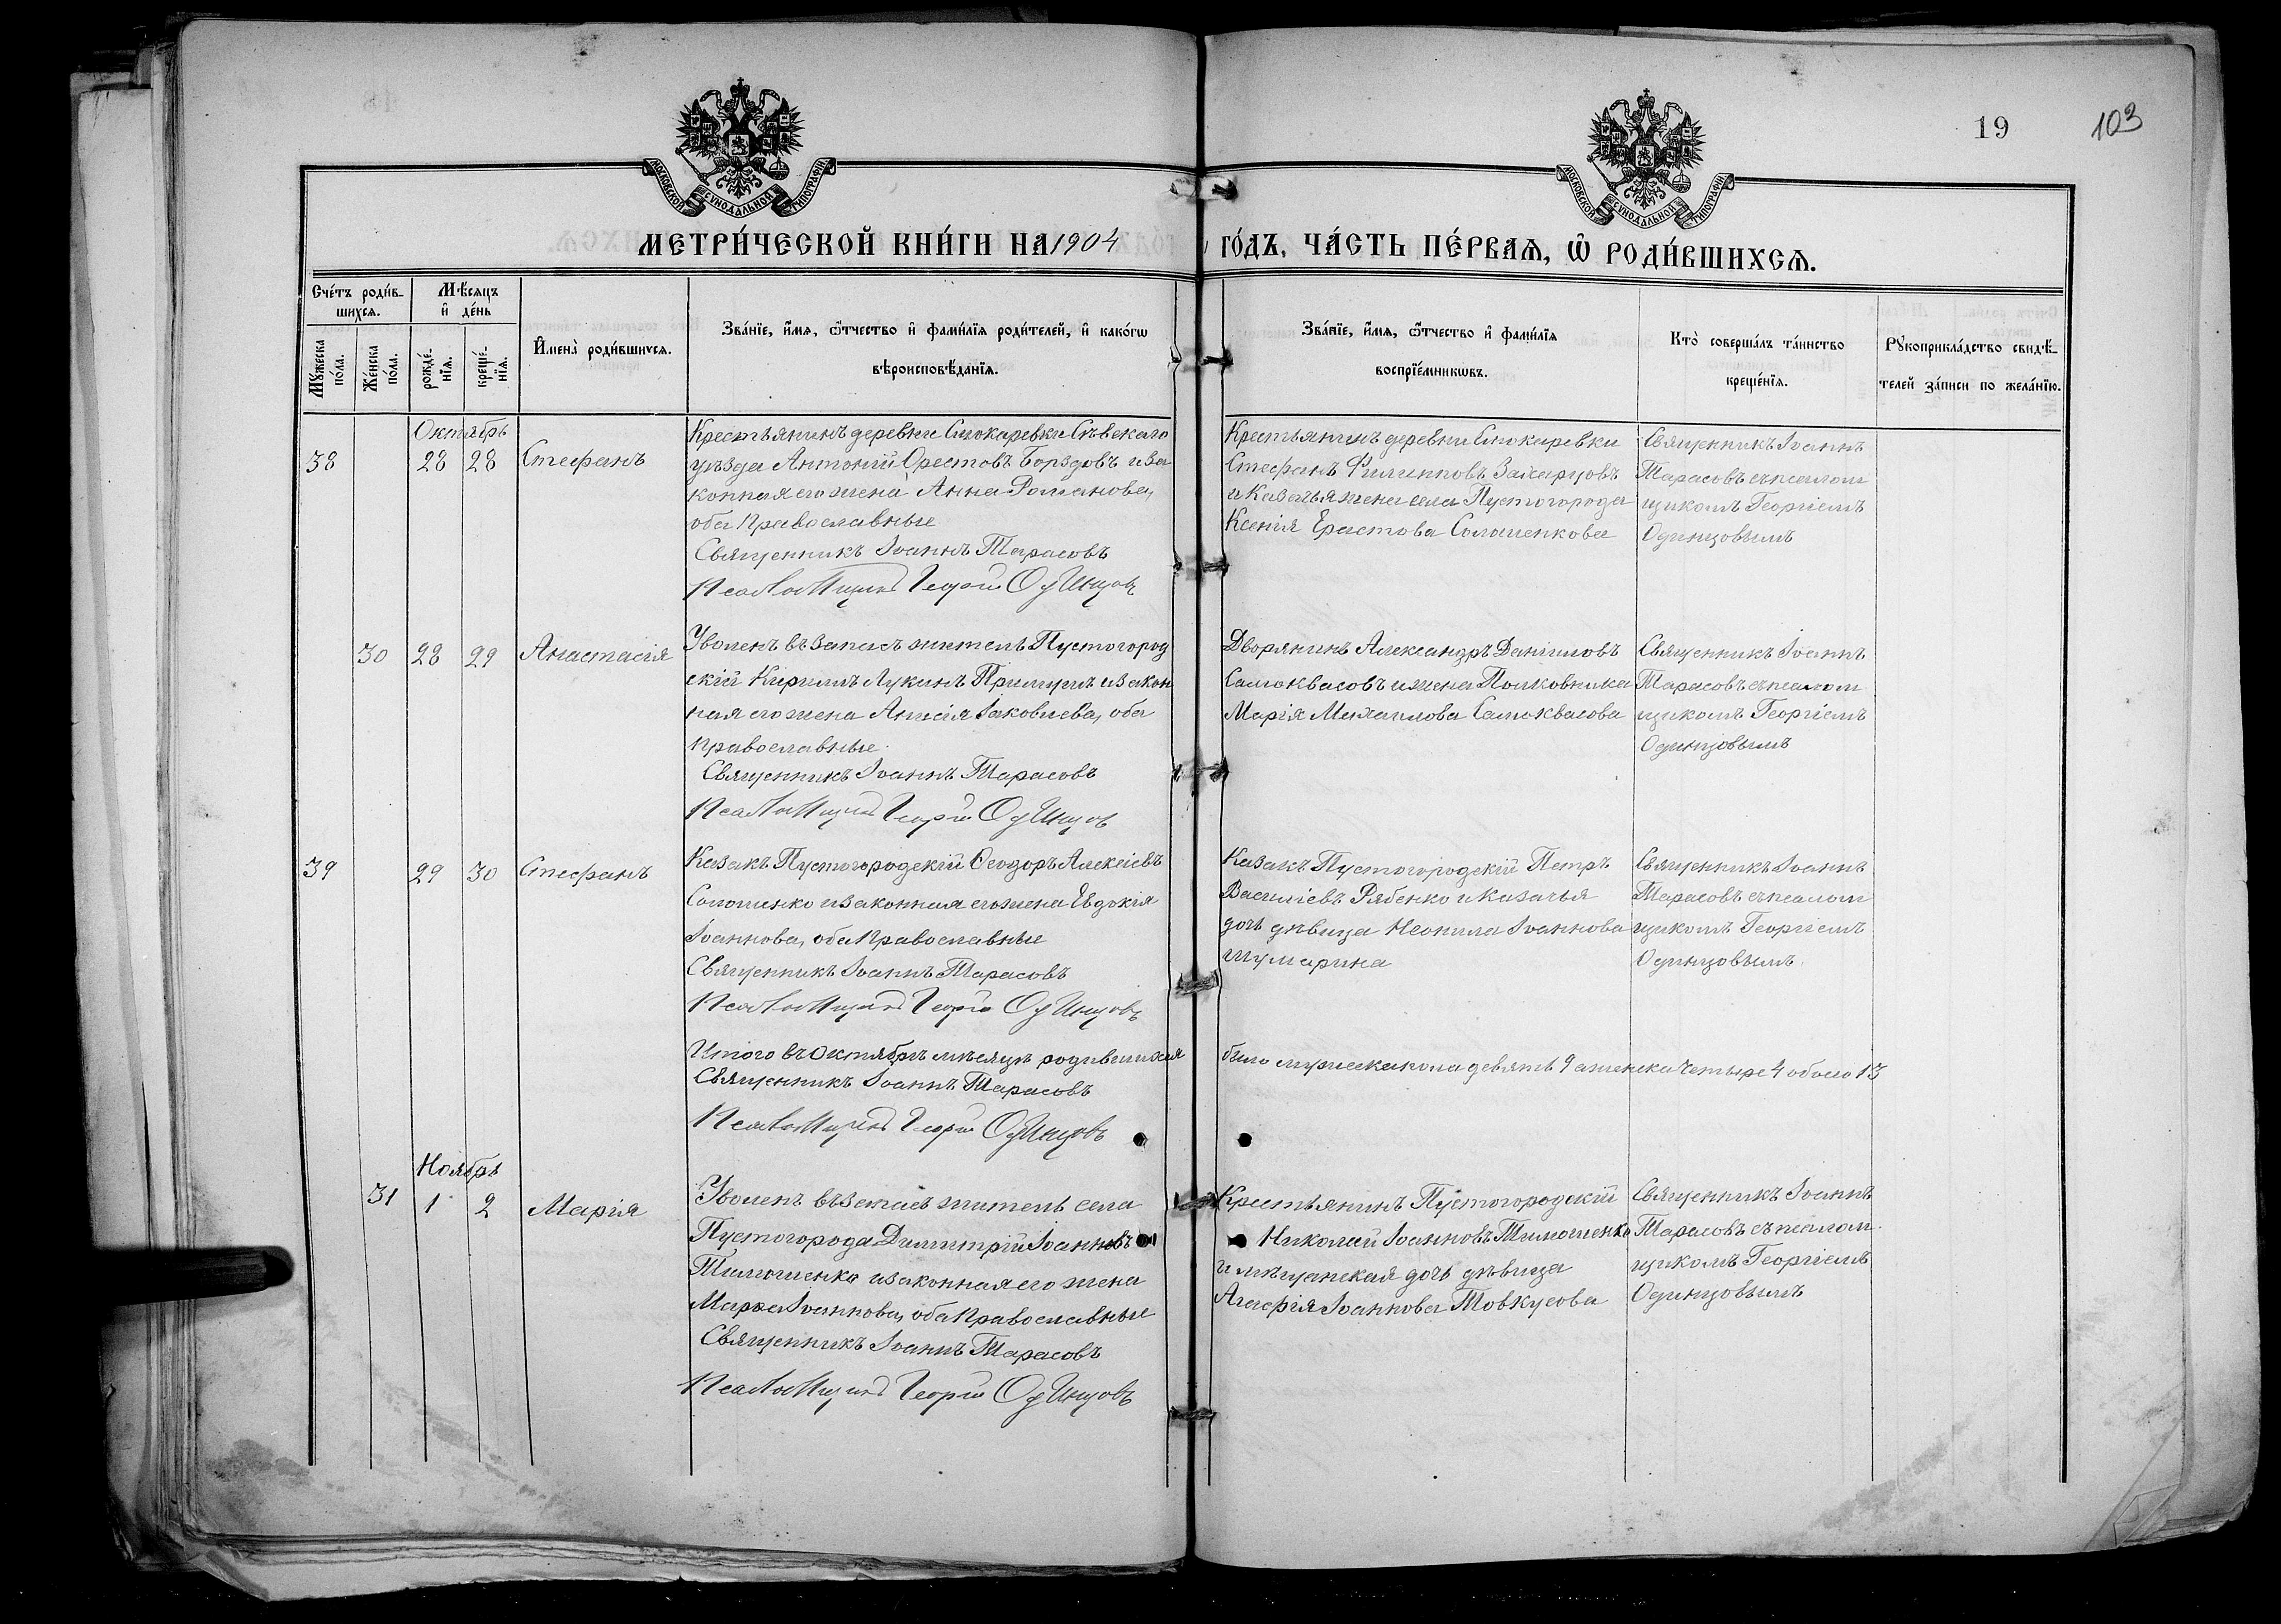 19
103
МОСКОВСКОЙ СѴНОДАЛЬНОЙ ТИПОГРАФІИ
МОСКОВСКОЙ СѴНОДАЛЬНОЙ ТИПОГРАФІИ
МЕТРИ́ЧЕСКОЙ КНИ́ГИ НА 1904 ГО́ДЪ, ЧА́СТЬ ПЕ́РВАѦ, Ѡ҆ РОДИ́ВШИХСѦ.
Сче́тъ роди́в-
шихсѧ.
Мѣ́сѧцъ
и҆ де́нь
Мꙋ́жеска по́ла.
Же́нска по́ла.
рожде́-нїѧ.
креще́-нїѧ.
И҆мена̀ роди́вшихсѧ.
Зва́нїе, и҆́мѧ, ѻ҆́тчество и҆ фами́лїѧ роди́телей, и҆ како́гѡ
вѣроисповѣ́данїѧ.
Зва́нїе, и҆́мѧ, ѻ҆́тчество и҆ фами́лїѧ
воспрїе́мникѡвъ.
Кто̀ соверша́лъ та́инство
креще́нїѧ.
Рꙋкоприкла́дство свидѣ́-
телей за́писи по жела́нїю.
Октябрь
38 28 28 Стефанъ
Крестьянинъ деревни Смокаревки Сѣвскаго
уѣзда Антоній Орестовъ Борздовъ и за
конная его жена Анна Романова,
оба православные
Священникъ Іоаннъ Тарасовъ
Псаломщикъ Георгій Одинцовъ
Крестьянинъ деревни Смокаревки
Стефанъ Филипповъ Захарцовъ
и Казачья жена села Пустогорода
Ксенія Ерастова Соломенкова
Священникъ Іоаннъ
Тарасовъ съ псалом
щикомъ Георгіемъ
Одинцовымъ
30 28 29 Анастасія
Уволенъ въ запасъ житель Пустогород
скій Кириллъ Лукинъ Примучъ и закон
ная его жена Анисія Іаковлева, оба
православные.
Священникъ Іоаннъ Тарасовъ
Псаломщикъ Георгій Одинцов
Дворянинъ Александръ Даниловъ
Самоквасовъ и жена Полковника
Марія Михаилова Самоквасова
Священникъ Іоаннъ
Тарасовъ съ псалом
щикомъ Георгіемъ
Одинцовымъ
39 29 30 Стефанъ
Казакъ Пустогородскій Ѳеодоръ Алексіевъ
Соломенко и законная его жена Евдокія
Іоаннова, оба православные
Священникъ Іоаннъ Тарасовъ
Псаломщикъ Георгій Одинцовъ
Казакъ Пустогородскій Петръ
Василіевъ Рябенко и казачья
дочь дѣвица Неонила Іоаннова
Шумарина
Священникъ Іоаннъ
Тарасовъ съ псалом
щикомъ Георгіемъ
Одинцовымъ.
Итого въ Октябрѣ мѣсяцѣ родившихся было мужеска пола девять 9 а женска четыре 4 обоего 13
Священникъ Іоаннъ Тарасовъ
Псаломщикъ Георгій Одинцовъ
Ноябрь
31 1 2 Марія
Уволенъ въ запасъ житель села
Пустогорода Димитрій Іоанновъ
Тимошенко и законная его жена
Марѳа Іоаннова, оба православные
Священникъ Іоаннъ Тарасовъ
Псаломщикъ Георгій Одинцовъ
Крестьянинъ Пустогородскій
Николай Іоанновъ Тимошенко
и мѣщанская дочь дѣвица
Агафія Іоаннова Товкусова
Священникъ Іоаннъ
Тарасовъ съ псалом
щикомъ Георгіемъ
Одинцовымъ